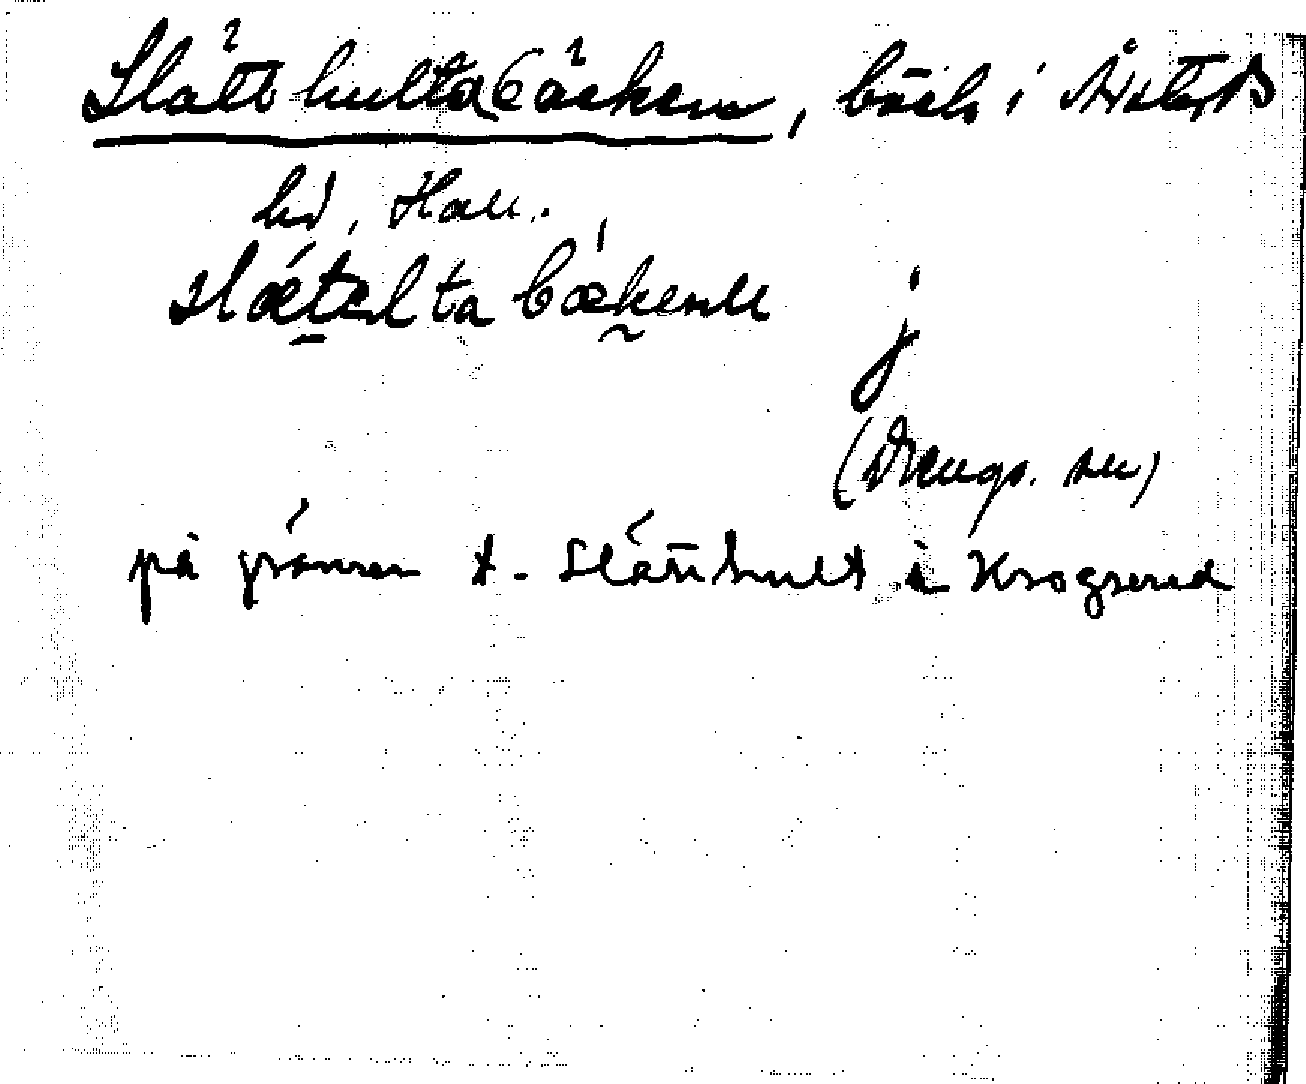 Slätthultabäcken, bäck i Årstads
hd, Hall.
slætelta bækenn
j
(Drengs. sn)
på gränsen t. Slätthult i Krogsered